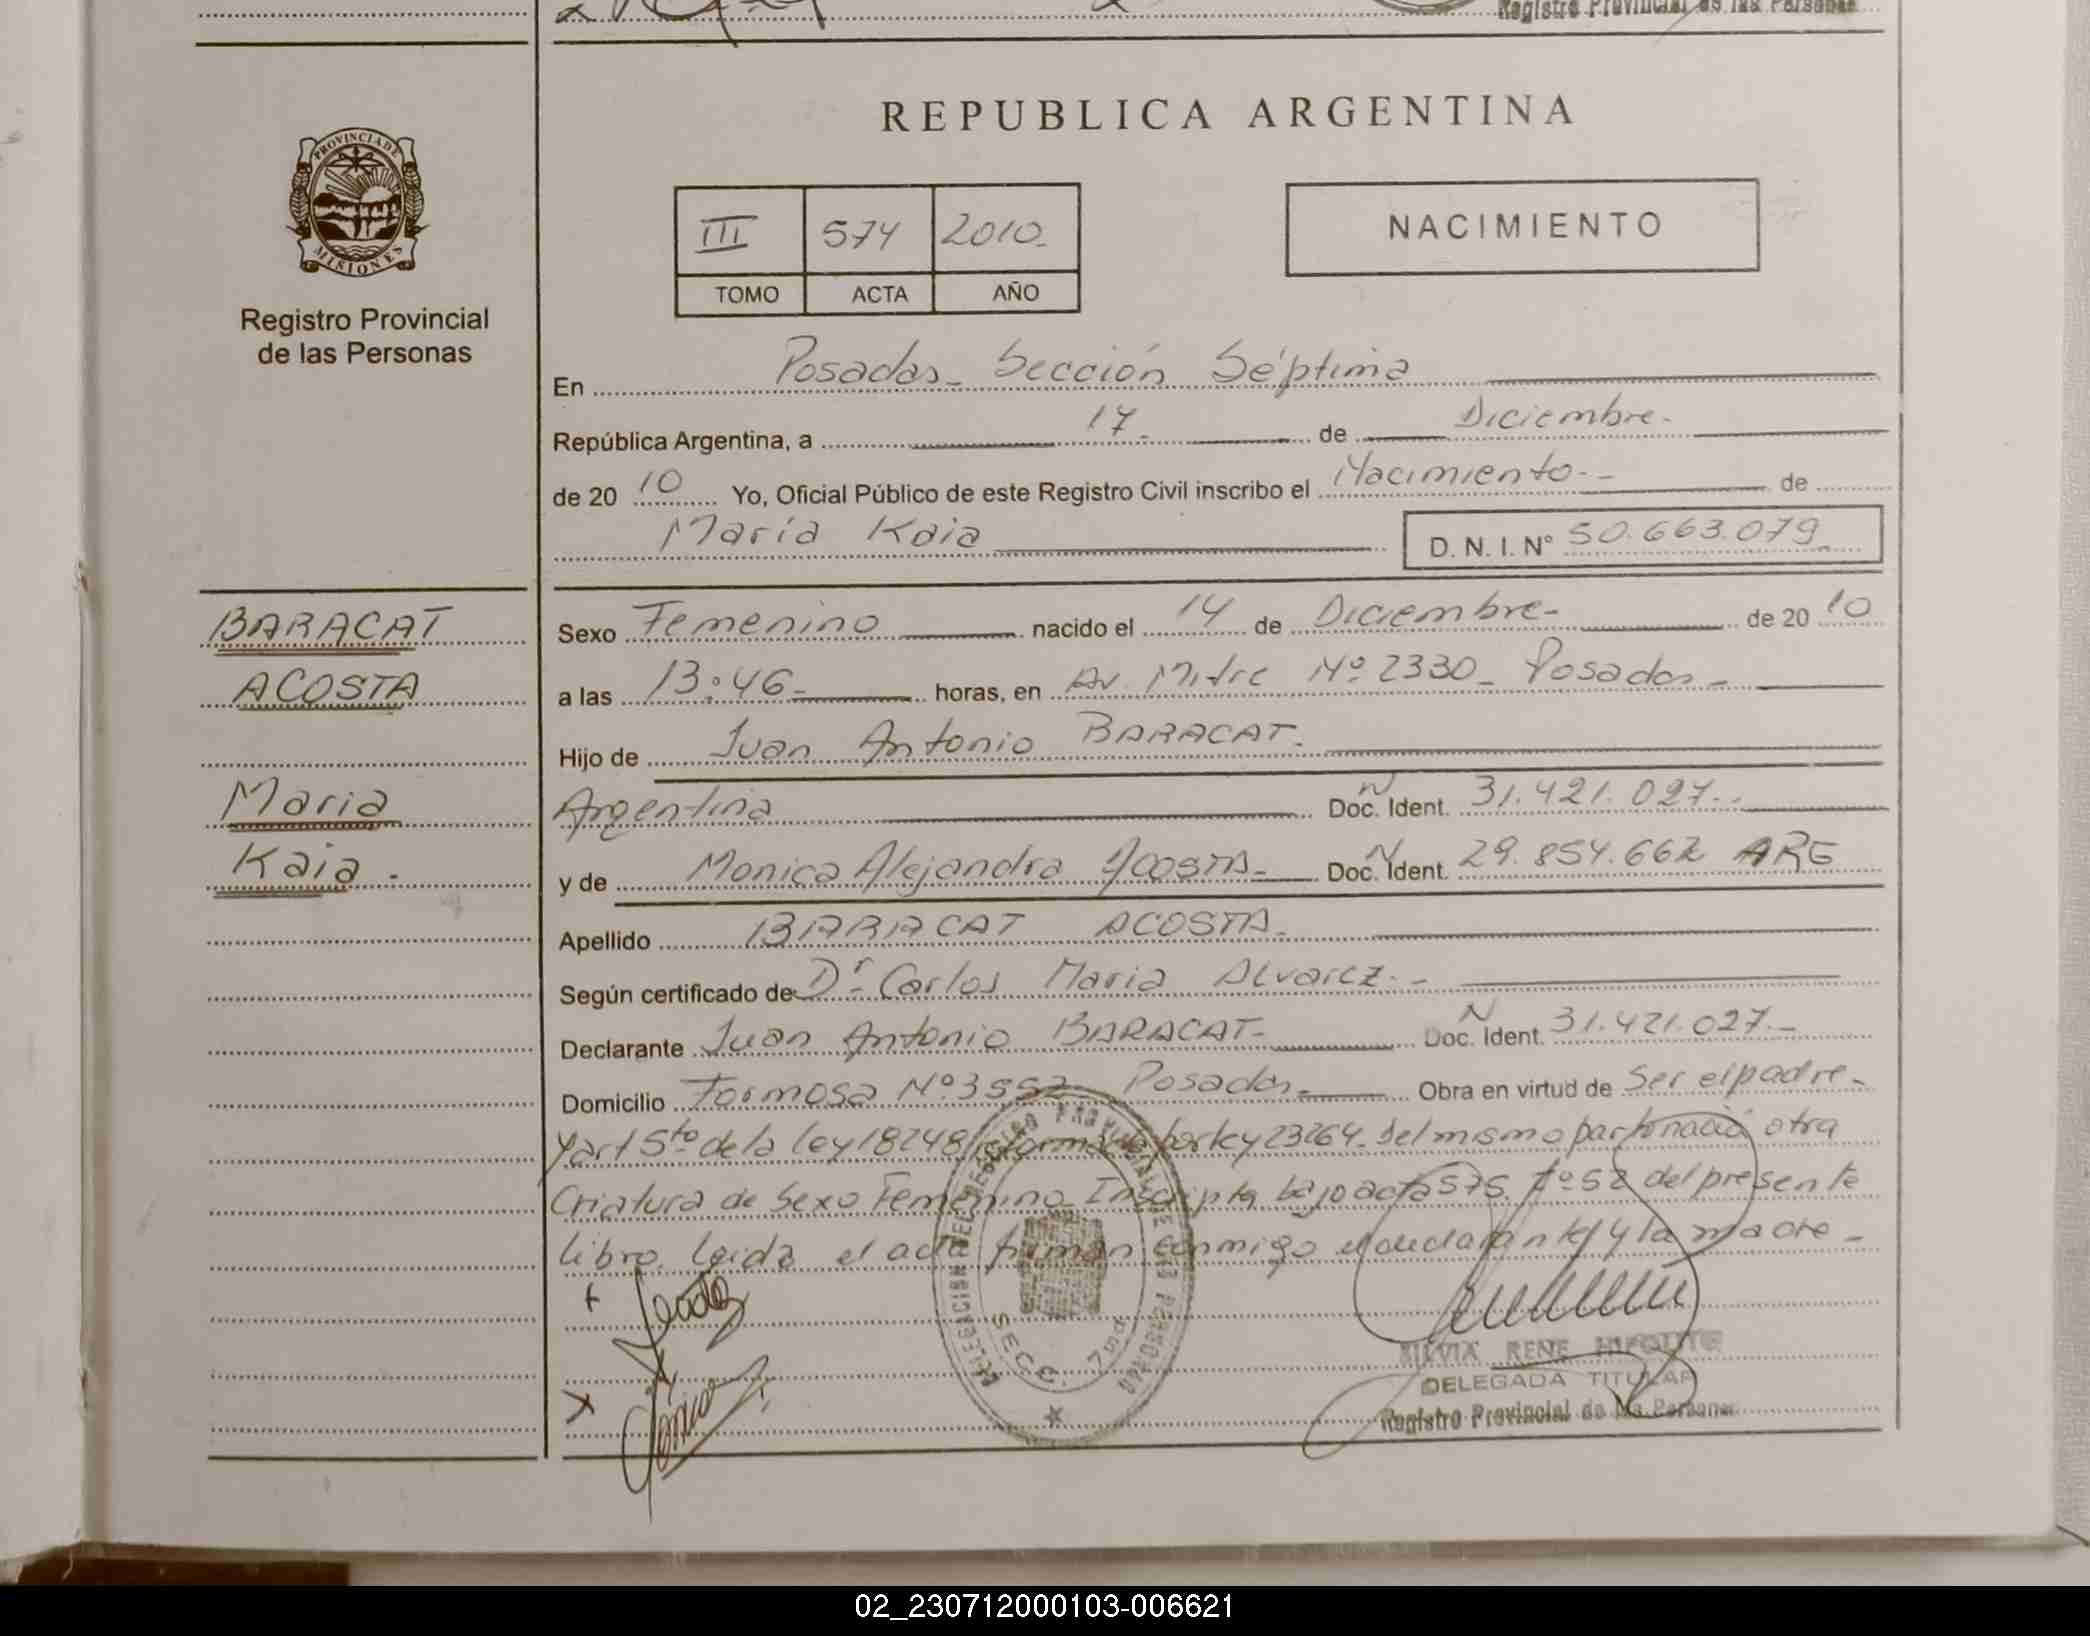 Registro Provincial de las Personas
REPUBLICA ARGENTINA
PROVINCIA DE
MISIONES
Registro Provincial
de las Personas
III 574 2010
TOMO ACTA AÑO
NACIMIENTO
En Posadas Sección Séptima
República Argentina, a 17 de Diciembre
de 20 10 Yo, Oficial Público de este Registro Civil inscribo el Nacimiento de
María Kaia D. N. I. Nº 50.663.079
BARACAT
ACOSTA
Maria
Kaia
Sexo Femenino nacido el 14 de Diciembre de 20 10
a las 13:46 horas, en Av. Mitre Nº 2330 Posadas
Hijo de Juan Antonio BARACAT
Argentina Doc. Ident. 31.421.027
y de Monica Alejandra ACOSTA Doc. Ident. 29.854.662 ARG
Apellido BARACAT ACOSTA
Según certificado de Dr Carlos Maria Alvarez
Declarante Juan Antonio BARACAT Doc. Ident. 31.421.027
Domicilio Formosa Nº 3552 Posadas Obra en virtud de Ser el padre
y art 5to de la ley 18248 por ley 23264. Del mismo parto nació otra
Criatura de Sexo Femenino Inscripta bajo acta 575 Fº 52 del presente
libro. Leida el acta firman conmigo el declarante y la madre
DELEGACION DEL REGISTRO PROVINCIAL DE LAS PERSONAS
SECC. 7ma
SILVIA RENE HIPOLITO
DELEGADA TITULAR
Registro Provincial de las Personas
02_230712000103-006621